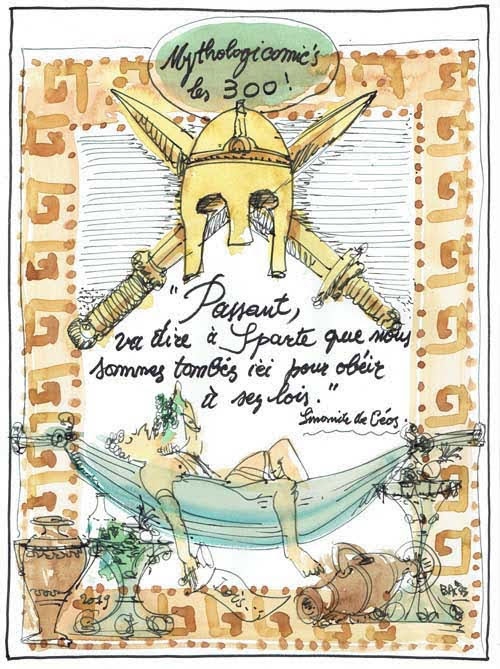 Mythologicomic's
les 300!
"Passant,
va dire à Sparte que nous
sommes tombés ici pour obéir
à ses lois."
Simonide de Céos.
2019